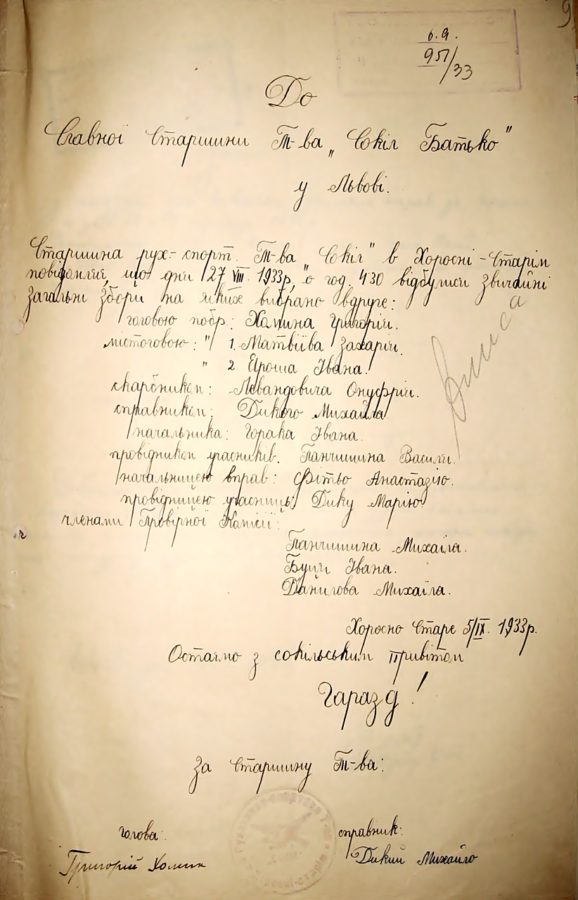 9
6.9.
951/33
До
Славної Старшини Т-ва „Сокіл Батько"
у Львові.
Старшина рух-спорт. Т-ва „Сокіл" в Хоросні-Старім
повідомляє, що дня 27 VIII 1933р, о год. 4 30 відбулися звичайні
загальні збори на яких вибрано вдруге:
головою побр: Хомина Григорія.
містоголовою: " 1. Матвіїва Захарія.
" 2. Яроша Івана.
скарбником: Левандовича Онуфрія.
справником: Дикого Михайла
начальника: Горака Івана.
провідником учасників: Панчишина Василя.
начальницею вправ: Фітьо Анастазію.
провідницею учасниць: Дику Марію
членами Провірної Комісії:
Панчишина Михайла.
Буця Івана.
Данилова Михайла.
Хоросно Старе 5/IX. 1933р.
Остаємо з сокільським привітом
Гаразд!
За Старшину Т-ва:
голова: справник:
Григорій Хомин Дикий Михайло